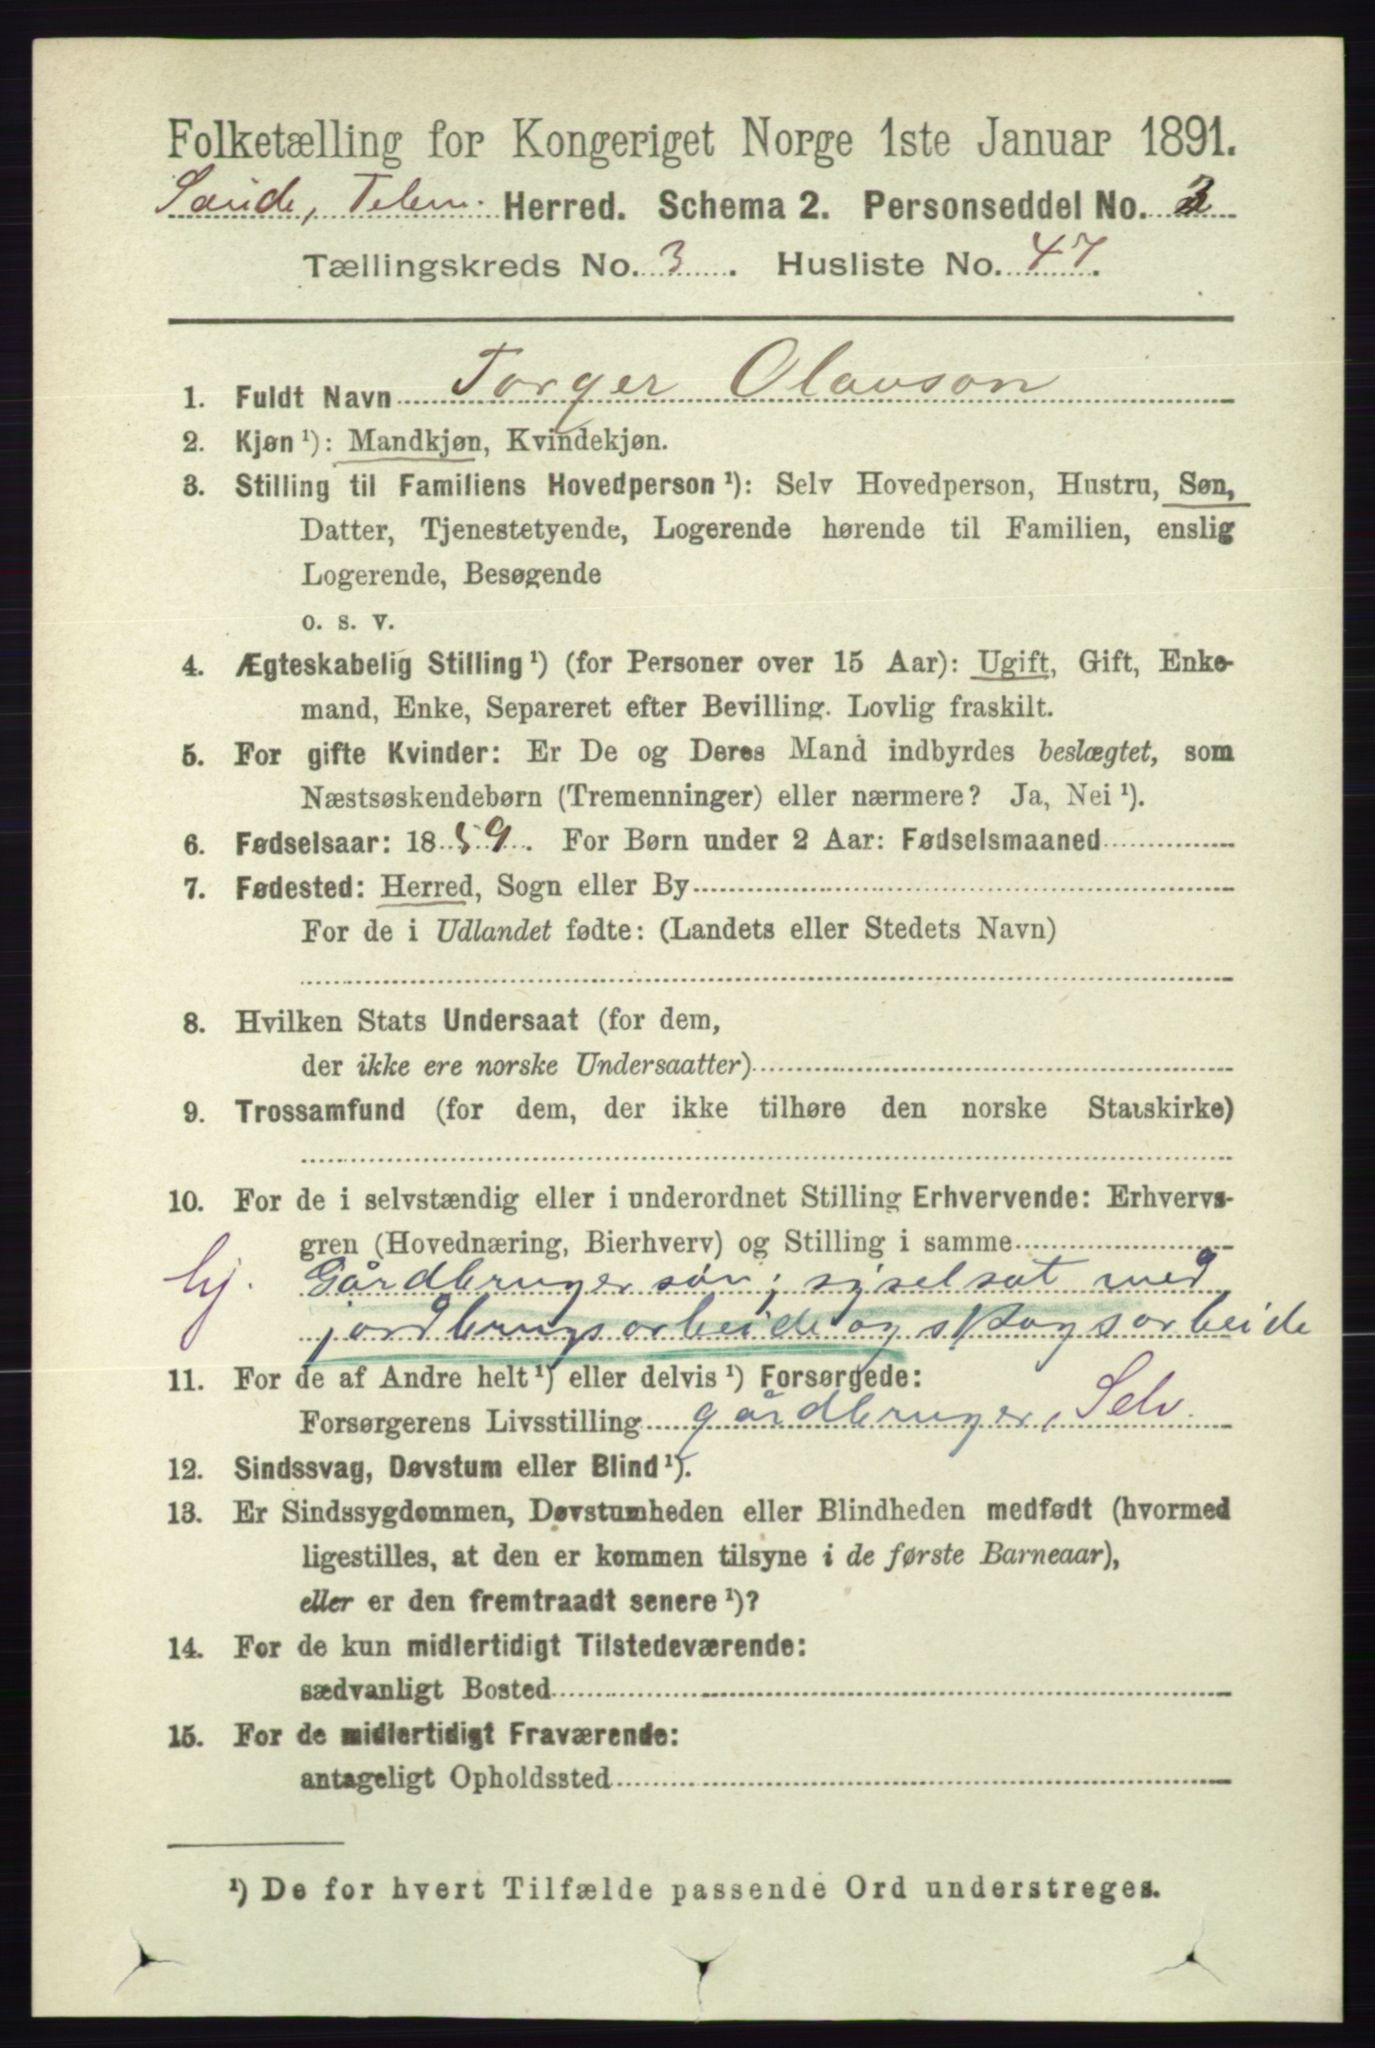 Folketælling for Kongeriget Norge 1ste Januar 1891.
Saude, Telem. Herred. Schema 2. Personseddel No. 3
Tællingskreds No. 3. Husliste No. 47.
1. Fuldt Navn Torger Olavson
2. Kjøn ¹): Mandkjøn, Kvindekjøn.
3. Stilling til Familiens Hovedperson ¹): Selv Hovedperson, Hustru, Søn,
Datter, Tjenestetyende, Logerende hørende til Familien, enslig
Logerende, Besøgende
o. s. v.
4. Ægteskabelig Stilling ¹) (for Personer over 15 Aar): Ugift, Gift, Enke-
mand, Enke, Separeret efter Bevilling. Lovlig fraskilt.
5. For gifte Kvinder: Er De og Deres Mand indbyrdes beslægtet, som
Næstsøskendebørn (Tremenninger) eller nærmere? Ja, Nei ¹).
6. Fødselsaar: 1859. For Børn under 2 Aar: Fødselsmaaned
7. Fødested: Herred, Sogn eller By
For de i Udlandet fødte: (Landets eller Stedets Navn)
8. Hvilken Stats Undersaat (for dem,
der ikke ere norske Undersaatter)
9. Trossamfund (for dem, der ikke tilhøre den norske Statskirke)
10. For de i selvstændig eller i underordnet Stilling Erhvervende: Erhvervs-
gren (Hovednæring, Bierhverv) og Stilling i samme
hj. Gårdbruger søn; syselsat med
jordbrugsarbeide og skogsarbeide
11. For de af Andre helt ¹) eller delvis ¹) Forsørgede:
Forsørgerens Livsstilling gårdbruger, Selv.
12. Sindssvag, Døvstum eller Blind ¹).
13. Er Sindssygdommen, Døvstumheden eller Blindheden medfødt (hvormed
ligestilles, at den er kommen tilsyne i de første Barneaar),
eller er den fremtraadt senere ¹)?
14. For de kun midlertidigt Tilstedeværende:
sædvanligt Bosted
15. For de midlertidigt Fraværende:
antageligt Opholdssted
¹) De for hvert Tilfælde passende Ord understreges.